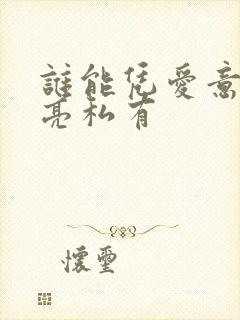 誰能凭愛意
亮私有
懷璽